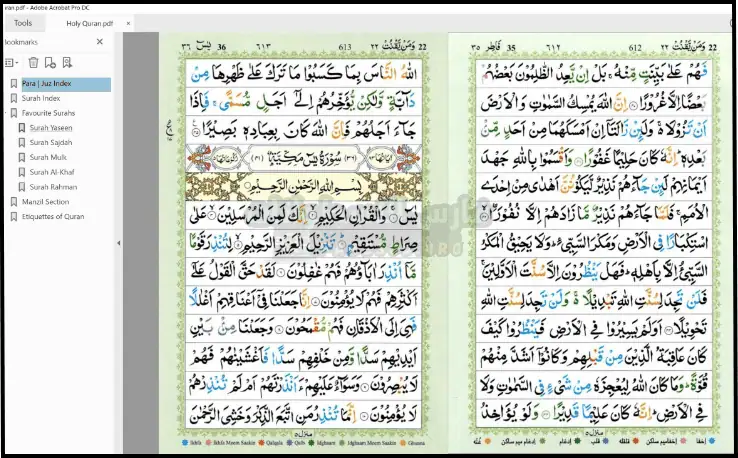 ıran.pdf - Adobe Acrobat Pro DC
Tools
Holy Quran.pdf
ookmarks
Para | Juz Index
Surah Index
Favourite Surahs
Surah Yaseen
Surah Sajdah
Surah Mulk
Surah Al-Khaf
Surah Rahman
Manzil Section
Etiquettes of Quran
22 وَمَنْ يَّقْنُتْ ٢٢ 612 ٦١٢ 35 فَاطِر ٣٥
فَهُمْ عَلٰى بَيِّنَتٍ مِّنْهُ ۚ بَلْ اِنْ يَّعِدُ الظّٰلِمُوْنَ بَعْضُهُمْ
بَعْضًا اِلَّا غُرُوْرًا ۝ اِنَّ اللّٰهَ يُمْسِكُ السَّمٰوٰتِ وَالْاَرْضَ
اَنْ تَزُوْلَا ۚ وَلَئِنْ زَالَتَاۤ اِنْ اَمْسَكَهُمَا مِنْ اَحَدٍ مِّنْۢ
بَعْدِهٖ ؕ اِنَّهٗ كَانَ حَلِيْمًا غَفُوْرًا ۝ وَاَقْسَمُوْا بِاللّٰهِ جَهْدَ
اَيْمَانِهِمْ لَئِنْ جَآءَهُمْ نَذِيْرٌ لَّيَكُوْنُنَّ اَهْدٰى مِنْ اِحْدَى
الْاُمَمِ ۚ فَلَمَّا جَآءَهُمْ نَذِيْرٌ مَّا زَادَهُمْ اِلَّا نُفُوْرًا ۝
اسْتِكْبَارًا فِى الْاَرْضِ وَمَكْرَ السَّيِّئِ ؕ وَلَا يَحِيْقُ الْمَكْرُ
السَّيِّئُ اِلَّا بِاَهْلِهٖ ؕ فَهَلْ يَنْظُرُوْنَ اِلَّا سُنَّتَ الْاَوَّلِيْنَ ۚ
فَلَنْ تَجِدَ لِسُنَّتِ اللّٰهِ تَبْدِيْلًا ۚ وَلَنْ تَجِدَ لِسُنَّتِ اللّٰهِ
تَحْوِيْلًا ۝ اَوَلَمْ يَسِيْرُوْا فِى الْاَرْضِ فَيَنْظُرُوْا كَيْفَ
كَانَ عَاقِبَةُ الَّذِيْنَ مِنْ قَبْلِهِمْ وَكَانُوْۤا اَشَدَّ مِنْهُمْ
قُوَّةً ؕ وَمَا كَانَ اللّٰهُ لِيُعْجِزَهٗ مِنْ شَىْءٍ فِى السَّمٰوٰتِ وَلَا
فِى الْاَرْضِ ؕ اِنَّهٗ كَانَ عَلِيْمًا قَدِيْرًا ۝ وَلَوْ يُؤَاخِذُ
منزل ٥
22 وَمَنْ يَّقْنُتْ ٢٢ 613 ٦١٣ 36 يٰسٓ ٣٦
اللّٰهُ النَّاسَ بِمَا كَسَبُوْا مَا تَرَكَ عَلٰى ظَهْرِهَا مِنْ
دَآبَّةٍ وَّلٰكِنْ يُّؤَخِّرُهُمْ اِلٰۤى اَجَلٍ مُّسَمًّى ۚ فَاِذَا
جَآءَ اَجَلُهُمْ فَاِنَّ اللّٰهَ كَانَ بِعِبَادِهٖ بَصِيْرًا ۝
(٣٦) سُوْرَةُ يٰسٓ مَكِّيَّةٌ (٤١)
بِسْمِ اللّٰهِ الرَّحْمٰنِ الرَّحِيْمِ
يٰسٓ ۝ وَالْقُرْاٰنِ الْحَكِيْمِ ۝ اِنَّكَ لَمِنَ الْمُرْسَلِيْنَ ۝ عَلٰى
صِرَاطٍ مُّسْتَقِيْمٍ ۝ تَنْزِيْلَ الْعَزِيْزِ الرَّحِيْمِ ۝ لِتُنْذِرَ قَوْمًا
مَّاۤ اُنْذِرَ اٰبَآؤُهُمْ فَهُمْ غٰفِلُوْنَ ۝ لَقَدْ حَقَّ الْقَوْلُ عَلٰۤى
اَكْثَرِهِمْ فَهُمْ لَا يُؤْمِنُوْنَ ۝ اِنَّا جَعَلْنَا فِىْۤ اَعْنَاقِهِمْ اَغْلٰلًا
فَهِىَ اِلَى الْاَذْقَانِ فَهُمْ مُّقْمَحُوْنَ ۝ وَجَعَلْنَا مِنْۢ بَيْنِ
اَيْدِيْهِمْ سَدًّا وَّمِنْ خَلْفِهِمْ سَدًّا فَاَغْشَيْنٰهُمْ فَهُمْ
لَا يُبْصِرُوْنَ ۝ وَسَوَآءٌ عَلَيْهِمْ ءَاَنْذَرْتَهُمْ اَمْ لَمْ تُنْذِرْهُمْ
لَا يُؤْمِنُوْنَ ۝ اِنَّمَا تُنْذِرُ مَنِ اتَّبَعَ الذِّكْرَ وَخَشِىَ الرَّحْمٰنَ
منزل ٥
Ikhfa Ikhfa Meem Saakin Qalqala Qalb Idghaam Idghaam Meem Saakin Ghunna
اخفا اخفامیم ساکن قلقلہ قلب ادغام ادغام میم ساکن غُنّہ